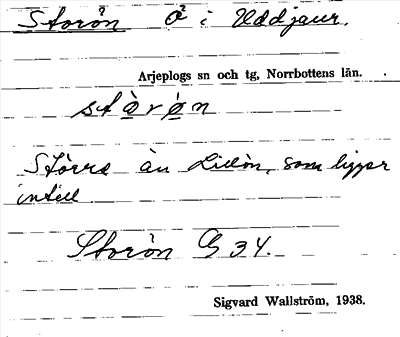 Storön Ö i Uddjaur.
Arjeplogs sn och tg, Norrbottens län.
stò̱rø̱n
Större än Lillön, som ligger
intill
Storön G 34.
Sigvard Wallström, 1938.